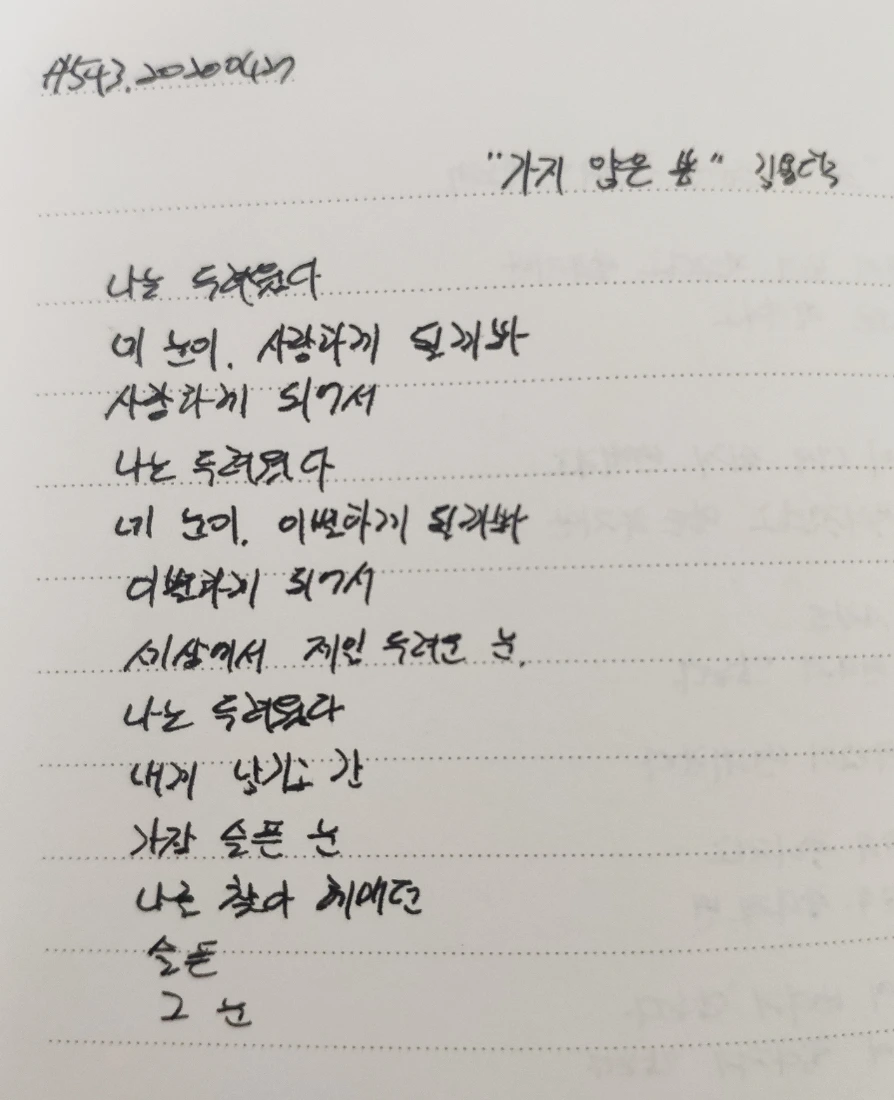 #543. 20200427
"가지 않은 봄" 김용택
나는 두려웠다
네 눈이, 사랑하게 될까봐
사랑하게 되어서
나는 두려웠다
네 눈이, 이별하게 될까봐
이별하게 되어서
세상에서 제일 두려운 눈,
나는 두려웠다
내게 남기고 간
가장 슬픈 눈
나를 찾아 헤매던
슬픈
그 눈